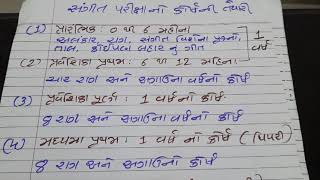 સંગીત પરીક્ષાનો કોર્ષની તૈયારી
(1) પ્રારંભિક : 0 થી 6 મહીના
અલંકાર, રાગ, સંગીત વિશેના પ્રશ્નો,
તાલ, કોઈપણ બહારનું ગીત
1 વર્ષ
(2) પ્રવેશિકા પ્રથમ : 6 થી 12 મહિના
ચાર રાગ અને અગાઉના વર્ષનો કોર્ષ
(3) પ્રવેશિકા પૂર્ણ : 1 વર્ષનો કોર્ષ
8 રાગ અને અગાઉના વર્ષનો કોર્ષ
(4) મધ્યમા પ્રથમ : 1 વર્ષનો કોર્ષ
8 રાગ અને અગાઉનો કોર્ષ